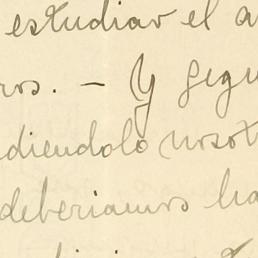 estudiar el a
ros. — Y segu
diendolo nosot
deberiamos ha